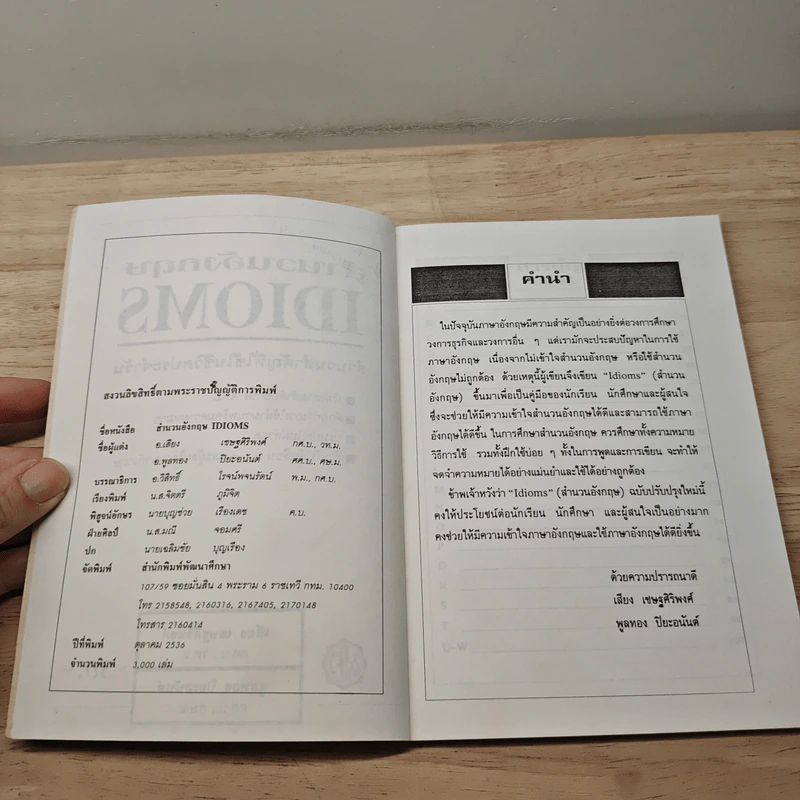 สงวนลิขสิทธิ์ตามพระราชบัญญัติการพิมพ์
ชื่อหนังสือ สำนวนอังกฤษ IDIOMS
ชื่อผู้แต่ง อ.เสียง เชษฐศิริพงศ์ กศ.บ., วท.ม.
อ.พูลทอง ปิยะอนันต์ ศศ.บ., ศษ.ม.
บรรณาธิการ อ.วิสิทธิ์ โรจน์พจนรัตน์ พ.ม., กศ.บ.
เรียงพิมพ์ น.ส.จิตตรี ภูมิจิต
พิสูจน์อักษร นายบุญช่วย เรืองเดช ค.บ.
ฝ่ายศิลป์ น.ส.มณี จอมศรี
ปก นายเฉลิมชัย บุญเรือง
จัดพิมพ์ สำนักพิมพ์พัฒนาศึกษา
107/59 ซอยมั่นสิน 4 พระราม 6 ราชเทวี กทม. 10400
โทร 2158548, 2160316, 2167405, 2170148
โทรสาร 2160414
ปีที่พิมพ์ ตุลาคม 2536
จำนวนพิมพ์ 3,000 เล่ม
คำนำ
ในปัจจุบันภาษาอังกฤษมีความสำคัญเป็นอย่างยิ่งต่อวงการศึกษา
วงการธุรกิจและวงการอื่น ๆ แต่เรามักจะประสบปัญหาในการใช้
ภาษาอังกฤษ เนื่องจากไม่เข้าใจสำนวนอังกฤษ หรือใช้สำนวน
อังกฤษไม่ถูกต้อง ด้วยเหตุนี้ผู้เขียนจึงเขียน "Idioms" (สำนวน
อังกฤษ) ขึ้นมาเพื่อเป็นคู่มือของนักเรียน นักศึกษาและผู้สนใจ
ซึ่งจะช่วยให้มีความเข้าใจสำนวนอังกฤษได้ดีและสามารถใช้ภาษา
อังกฤษได้ดีขึ้น ในการศึกษาสำนวนอังกฤษ ควรศึกษาทั้งความหมาย
วิธีการใช้ รวมทั้งฝึกใช้บ่อย ๆ ทั้งในการพูดและการเขียน จะทำให้
จดจำความหมายได้อย่างแม่นยำและใช้ได้อย่างถูกต้อง
ข้าพเจ้าหวังว่า "Idioms" (สำนวนอังกฤษ) ฉบับปรับปรุงใหม่นี้
คงให้ประโยชน์ต่อนักเรียน นักศึกษา และผู้สนใจเป็นอย่างมาก
คงช่วยให้มีความเข้าใจภาษาอังกฤษและใช้ภาษาอังกฤษได้ดียิ่งขึ้น
ด้วยความปรารถนาดี
เสียง เชษฐศิริพงศ์
พูลทอง ปิยะอนันต์